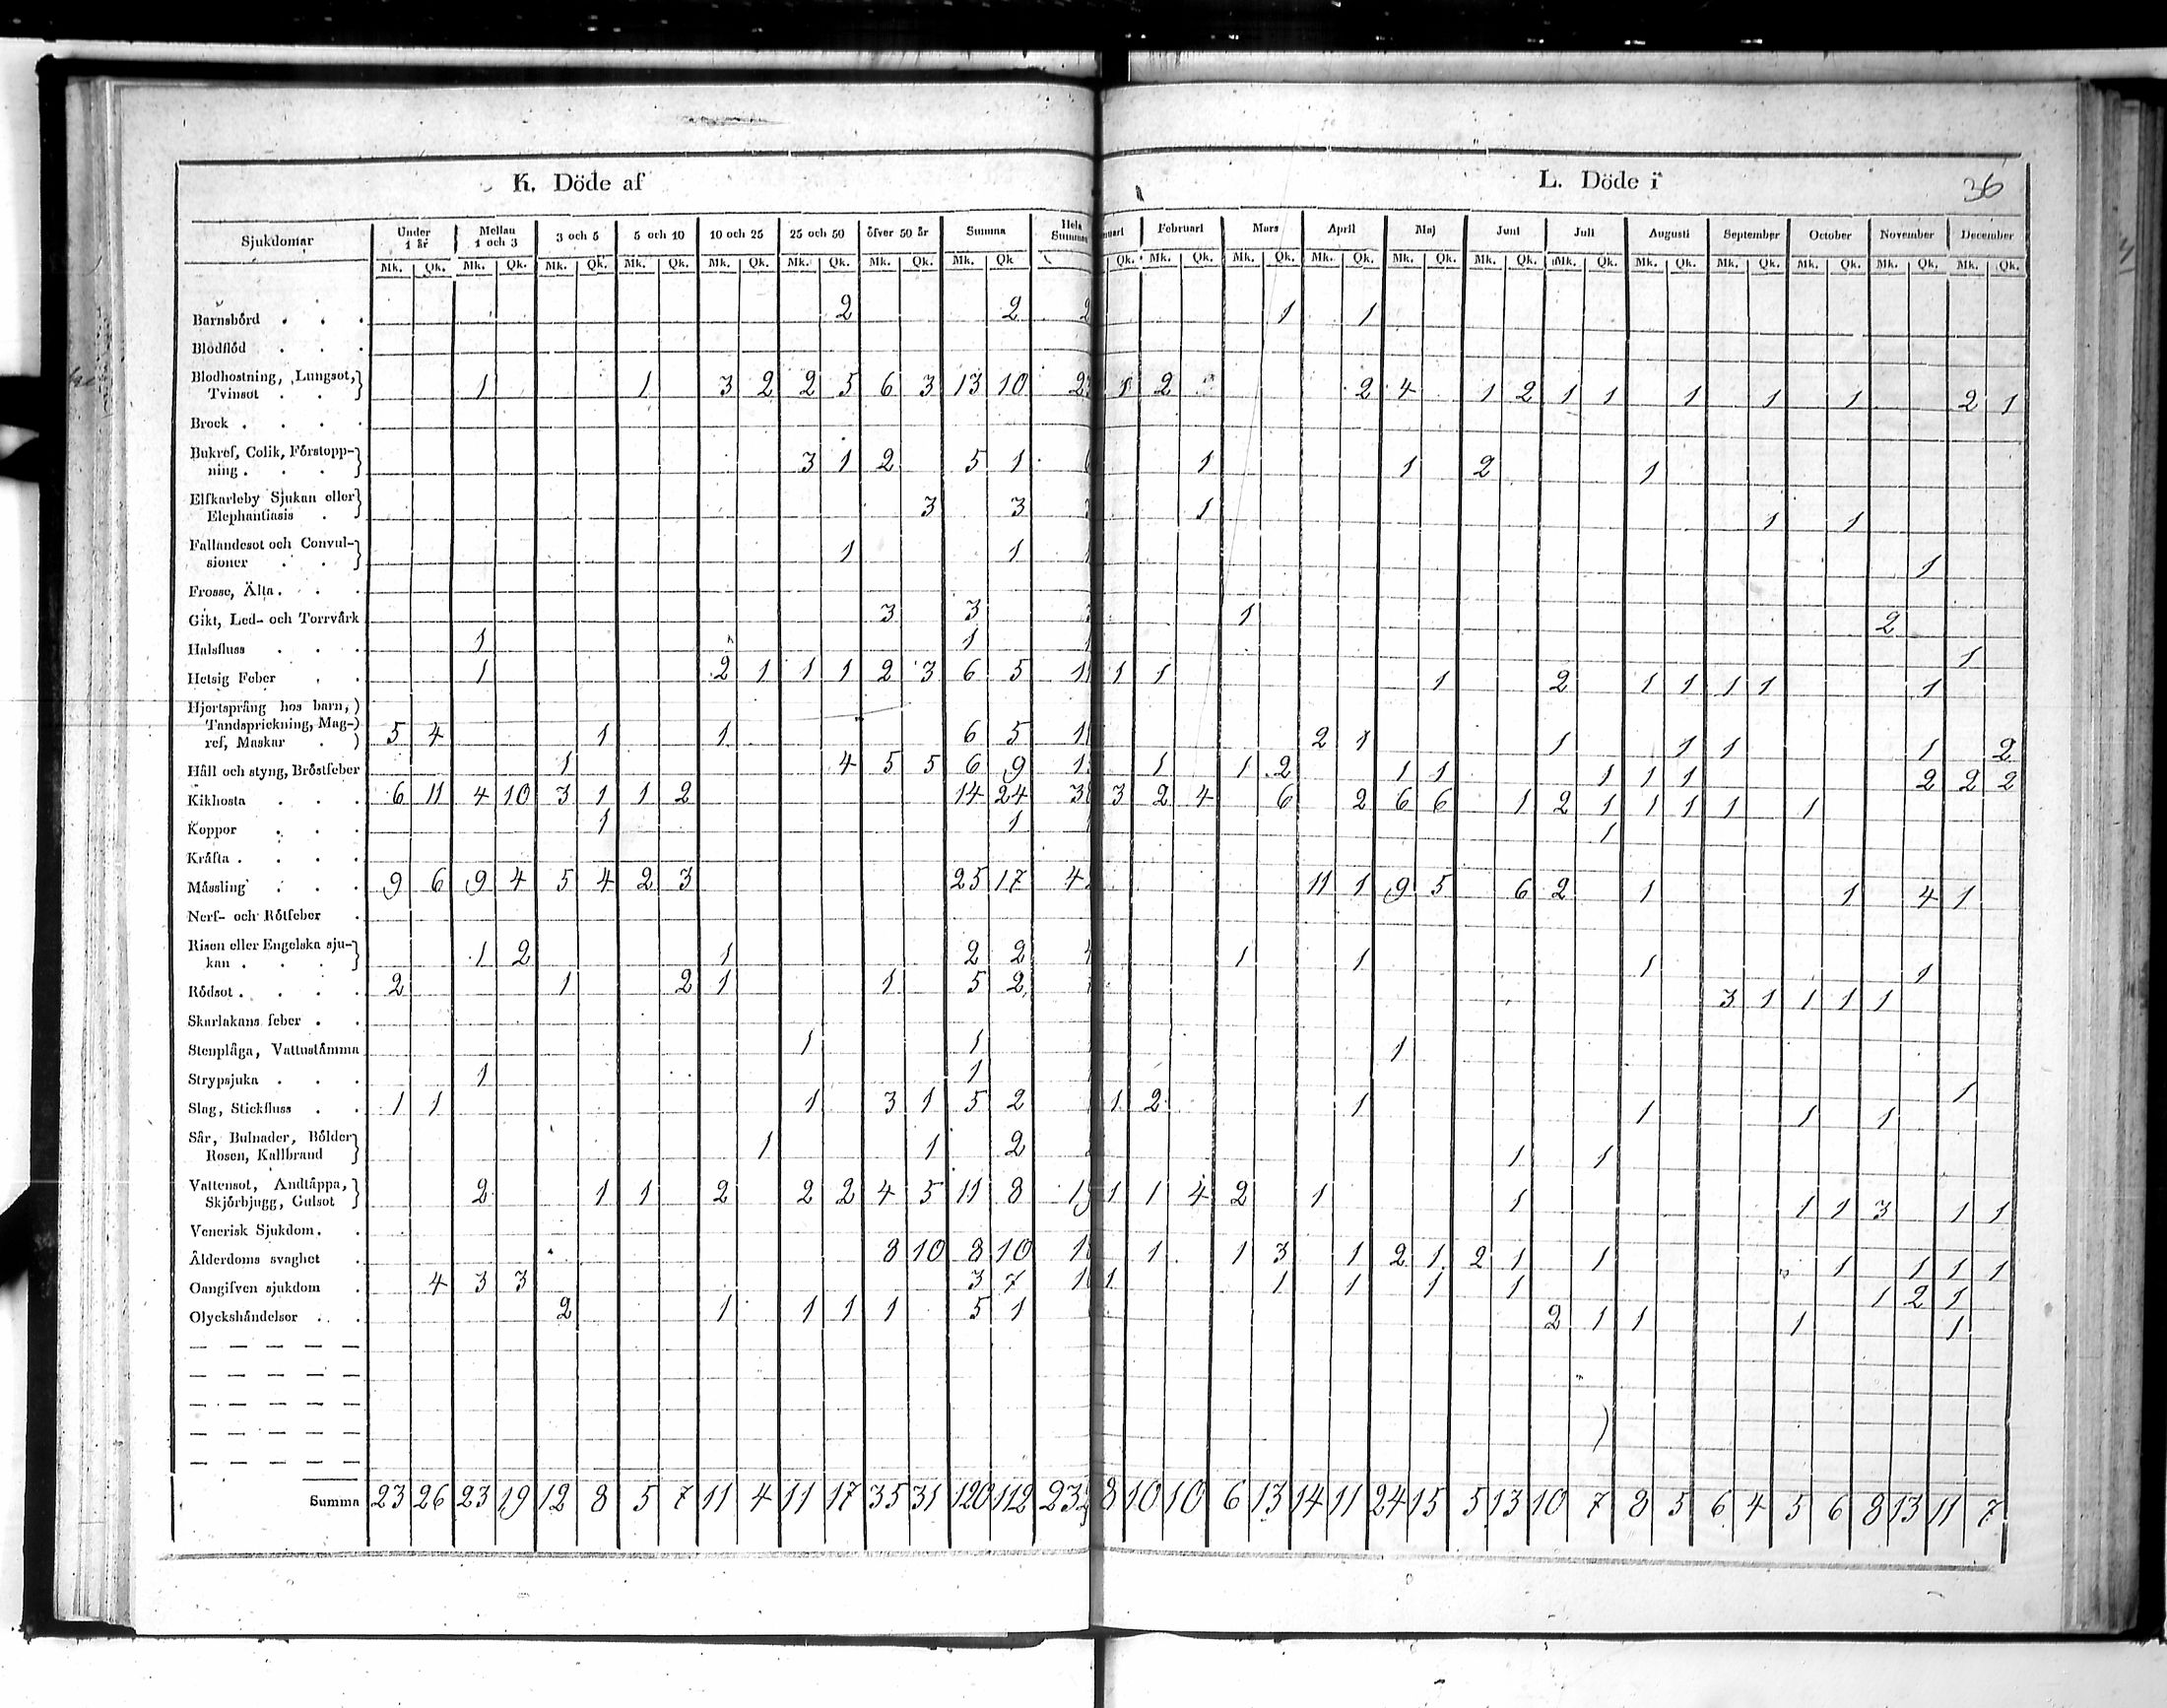 K. Döde af
L. Döde i
36
Sjukdomar | Under 1 år | Mellan 1 och 3 | 3 och 5 | 5 och 10 | 10 och 25 | 25 och 50 | öfver 50 år | Summa | Hela Summan | Februari | Mars | April | Maj | Juni | Juli | Augusti | September | October | November | December
Mk. Qk. Mk. Qk. Mk. Qk. Mk. Qk. Mk. Qk. Mk. Qk. Mk. Qk. Mk. Qk | Qk. Mk. Qk. Mk. Qk. Mk. Qk. Mk. Qk. Mk. Qk. Mk. Qk. Mk. Qk. Mk. Qk. Mk. Qk. Mk. Qk. Mk. Qk.
Barnsbörd . . . 2 2 2 | 1 1
Blodflöd . . .
Blodhostning, Lungsot,
Tvinsot . . 1 1 3 2 2 5 6 3 13 10 2 | 1 2 2 4 1 2 1 1 1 1 1 2 1
Brock . . . .
Bukref, Colik, Förstopp-
ning . . . 3 1 2 5 1 | 1 1 2 1
Elfkarleby Sjukan eller
Elephantiasis . 3 3 | 1 1 1
Fallandesot och Convul-
sioner . . 1 1 | 1
Frosse, Älta . . .
Gikt, Led- och Torrvärk 3 3 | 1 2
Halsfluss . . . 1 1 | 1
Hetsig Feber . . 1 2 1 1 1 2 3 6 5 1 | 1 1 1 2 1 1 1 1 1
Hjortsprång hos barn,
Tandsprickning, Mag-
ref, Maskar . 5 4 1 1 6 5 1 | 2 1 1 1 1 1 2
Håll och styng, Bröstfeber 1 4 5 5 6 9 1 | 1 1 2 1 1 1 1 1 2 2 2
Kikhosta . . . 6 11 4 10 3 1 1 2 14 24 3 | 3 2 4 6 2 6 6 1 2 1 1 1 1 1
Koppor . . . 1 1 | 1
Kräfta . . . .
Mässling . . . 9 6 9 4 5 4 2 3 25 17 4 | 11 1 9 5 6 2 1 1 4 1
Nerf- och Rötfeber .
Risen eller Engelska sju-
kan . . . 1 2 1 2 2 | 1 1 1 1
Rödsot . . . . 2 1 2 1 1 5 2 | 3 1 1 1 1
Skarlakans feber . .
Stenplåga, Vattustämma 1 1 | 1
Strypsjuka . . . 1 1 | 1
Slag, Stickfluss . . 1 1 1 3 1 5 2 | 1 2 1 1 1 1
Sår, Bulnader, Bölder
Rosen, Kallbrand 1 1 2 | 1 1
Vattensot, Andtäppa,
Skjörbjugg, Gulsot 2 1 1 2 2 2 4 5 11 8 19 | 1 1 4 2 1 1 1 1 3 1 1
Venerisk Sjukdom . .
Ålderdoms svaghet . 8 10 8 10 1 | 1 1 3 1 2 1 2 1 1 1 1 1 1
Oangifven sjukdom . 4 3 3 3 7 1 | 1 1 1 1 1 1 2 1
Olyckshändelser . . . 2 1 1 1 1 5 1 | 2 1 1 1 1
Summa 23 26 23 19 12 8 5 7 11 4 11 17 35 31 120 112 232 | 8 10 10 6 13 14 11 24 15 5 13 10 7 8 5 6 4 5 6 8 13 11 7